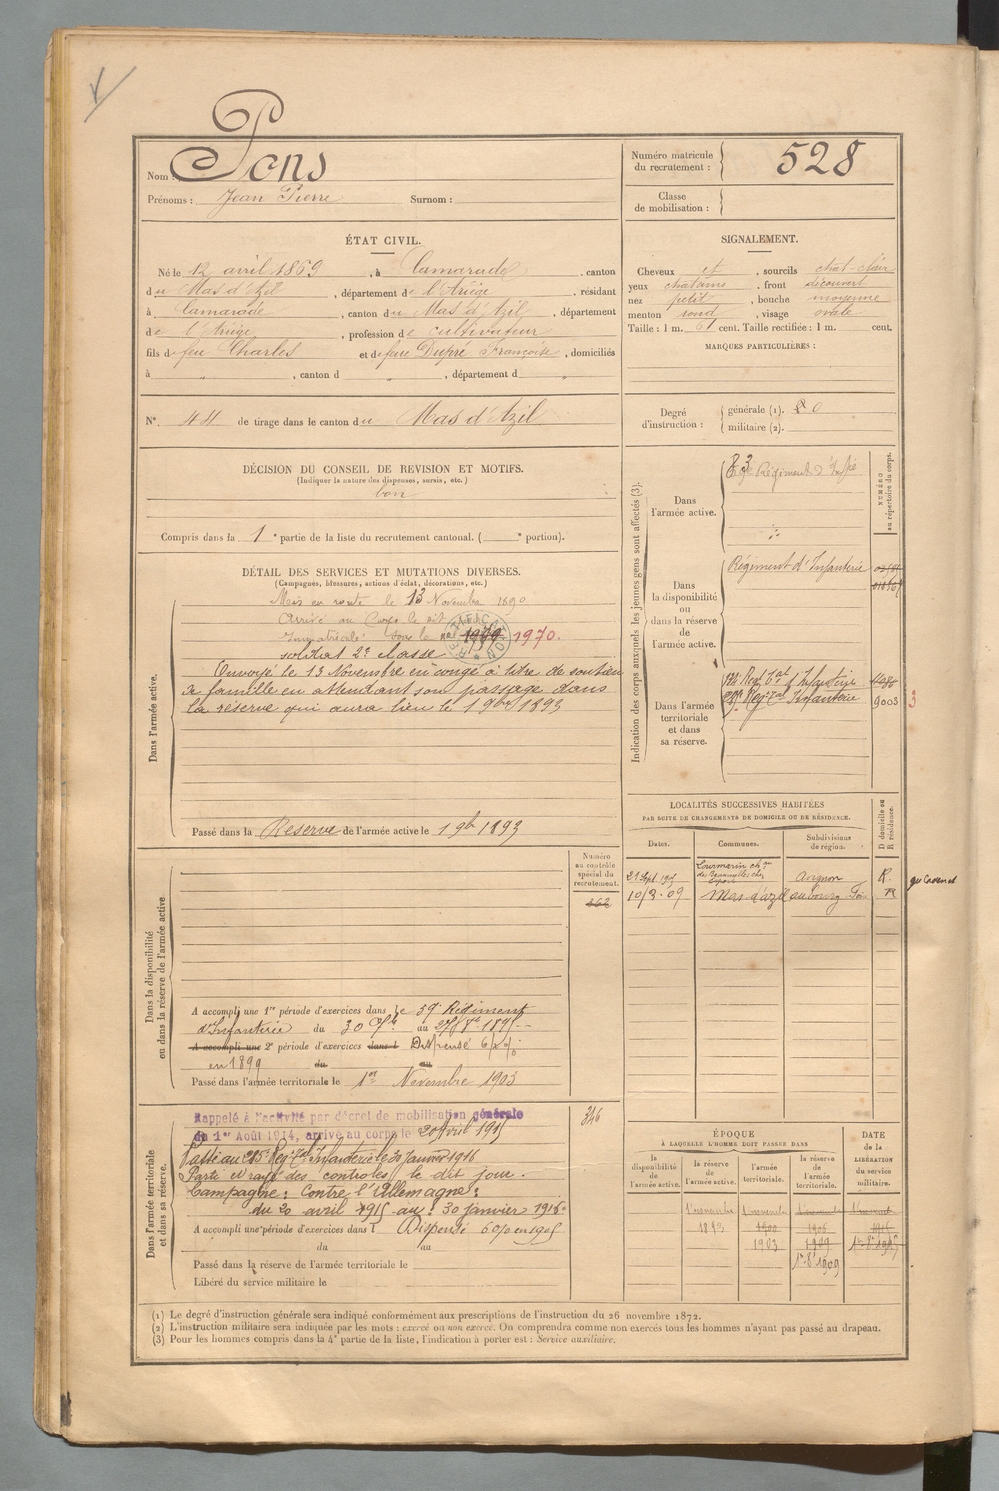 Pons
Nom :
Prénoms : Jean Pierre Surnom :
Numéro matricule du recrutement : 528
Classe de mobilisation :
ÉTAT CIVIL.
Né le 12 avril 1869, à Camarade, canton
du Mas d'Azil, département de l'Ariège, résidant
à Camarade, canton du Mas d'Azil, département
de l'Ariège, profession de cultivateur
fils de feu Charles et de feue Dupré Françoise, domiciliés
à " , canton d " , département d "
SIGNALEMENT.
Cheveux et , sourcils chat-clair
yeux chatains , front découvert
nez petit , bouche moyenne
menton rond , visage ovale
Taille : 1 m. 61 cent. Taille rectifiée : 1 m. cent.
MARQUES PARTICULIÈRES :
N° 44 de tirage dans le canton du Mas d'Azil
Degré d'instruction : générale (1). 0
militaire (2).
DÉCISION DU CONSEIL DE REVISION ET MOTIFS.
(Indiquer la nature des dispenses, sursis, etc.)
bon
Compris dans la 1e partie de la liste du recrutement cantonal. ( e portion).
DÉTAIL DES SERVICES ET MUTATIONS DIVERSES.
(Campagnes, blessures, actions d'éclat, décorations, etc.)
Dans l'armée active.
Mis en route le 13 Novembre 1890
Arrivé au Corps le dit
Immatriculé sous le no 1970.
RECTIFICATION
soldat 2e classe
Envoyé le 13 Novembre en congé à titre de soutien
de famille en attendant son passage dans
la réserve qui aura lieu le 1 9bre 1893
Passé dans la Réserve de l'armée active le 1 9bre 1893
Indication des corps auxquels les jeunes gens sont affectés (3).
NUMÉRO au répertoire du corps.
Dans l'armée active.
Régiment d'Infie
Dans la disponibilité ou dans la réserve de l'armée active.
Régiment d'Infanterie
Dans l'armée territoriale et dans sa réserve.
Regt Tal d'Infanterie
Regt Tal Infanterie 9003 3
LOCALITÉS SUCCESSIVES HABITÉES
PAR SUITE DE CHANGEMENTS DE DOMICILE OU DE RÉSIDENCE.
Dates. Communes. Subdivisions de région. D domicile ou R résidence.
Lourmarin Avignon R.
10/3-09 Mas d'azil au bourg Foix R
Dans la disponibilité ou dans la réserve de l'armée active
Numéro au contrôle spécial du recrutement.
A accompli une 1re période d'exercices dans le 59e Régiment
d'Infanterie du 30 7bre au 27 8bre 1895
A accompli une 2e période d'exercices dans l Dispensé 6%
en 1899 du au
Passé dans l'armée territoriale le 1er Novembre 1903
Dans l'armée territoriale et dans sa réserve.
346
Rappelé à l'activité par décret de mobilisation générale
du 1er Août 1914, arrivé au corps le 20 Avril 1915
Passé au 215e Regt Tal Infanterie le 30 Janvier 1916
Parti et rayé des controles le dit jour.
Campagne : Contre l'Allemagne :
du 20 avril 1915 au : 30 Janvier 1916
A accompli une période d'exercices dans l Dispensé 6% en 1905
du au
Passé dans la réserve de l'armée territoriale le
Libéré du service militaire le
ÉPOQUE
À LAQUELLE L'HOMME DOIT PASSER DANS
la disponibilité de l'armée active. la réserve de l'armée active. l'armée territoriale. la réserve de l'armée territoriale.
DATE de la LIBÉRATION du service militaire.
1 novembre 1 novembre 1 novembre 1 novembre
1893 1900 1906 1915
1903 1909
1er 8e 1909
(1) Le degré d'instruction générale sera indiqué conformément aux prescriptions de l'instruction du 26 novembre 1872.
(2) L'instruction militaire sera indiquée par les mots : exercé ou non exercé. On comprendra comme non exercés tous les hommes n'ayant pas passé au drapeau.
(3) Pour les hommes compris dans la 4e partie de la liste, l'indication à porter est : Service auxiliaire.